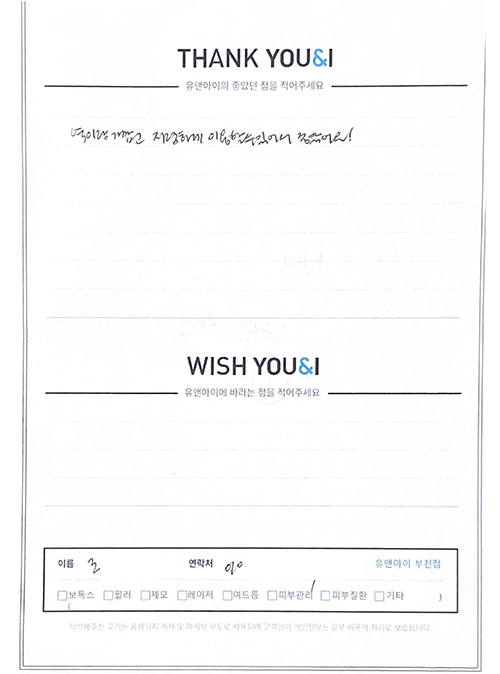 THANK YOU&I
유앤아이의 좋았던 점을 적어주세요
역이랑 가깝고 저렴하게 이용할 수 있어서 좋았어요!
WISH YOU&I
유앤아이에 바라는 점을 적어주세요
이름 조 연락처 010 유앤아이 부천점
보톡스 필러 제모 레이저 여드름 피부관리 피부질환 기타 ( )
작성해주신 후기는 홈페이지 게재 및 마케팅 용도로 사용되며 고객님의 개인정보는 일부 비공개 처리로 보호됩니다.